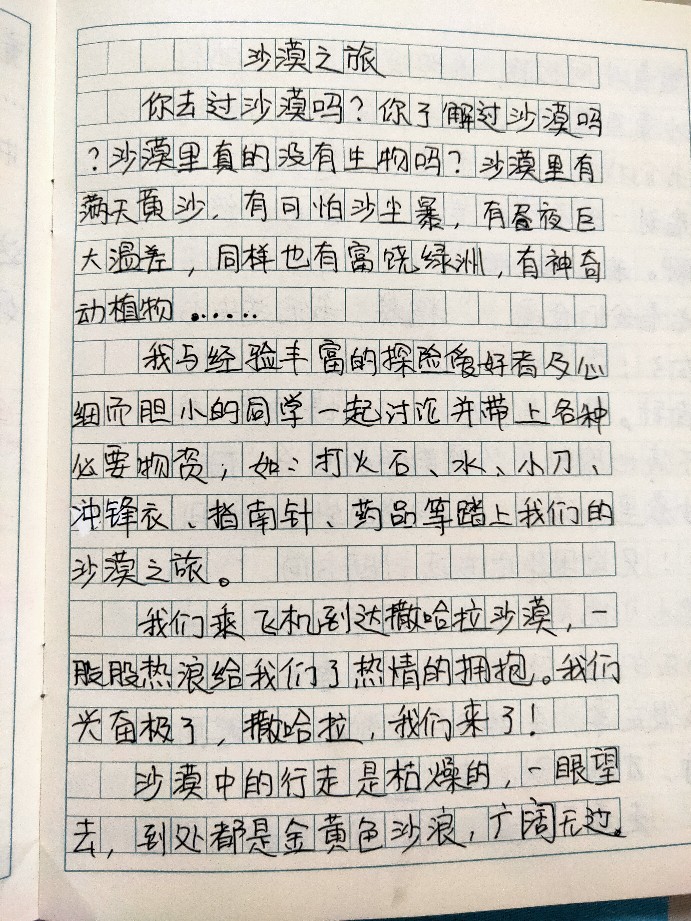 沙漠之旅
你去过沙漠吗?你了解过沙漠吗
?沙漠里真的没有生物吗?沙漠里有
满天黄沙,有可怕沙尘暴,有昼夜巨
大温差,同样也有富饶绿洲,有神奇
动植物......
我与经验丰富的探险爱好者及心
细而胆小的同学一起讨论并带上各种
必要物资,如:打火石、水、小刀、
冲锋衣、指南针、药品等踏上我们的
沙漠之旅。
我们乘飞机到达撒哈拉沙漠,一
股股热浪给我们了热情的拥抱。我们
兴奋极了,撒哈拉,我们来了!
沙漠中的行走是枯燥的,一眼望
去,到处都是金黄色沙浪,广阔无边。